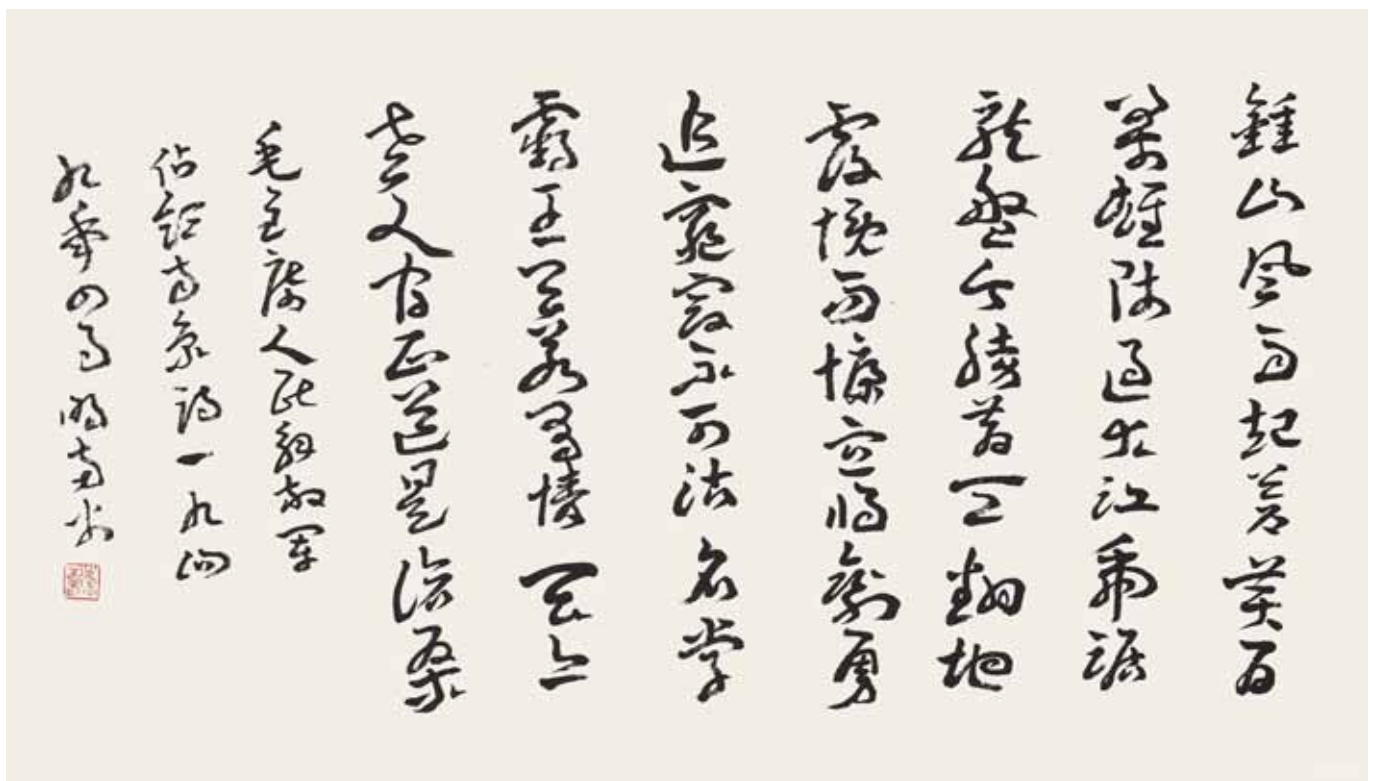 鍾山風雨起蒼黄百
萬雄師過大江虎踞
龍盤今勝昔天翻地
覆慨而慷宜將剩勇
追窮寇不可沽名学
霸王天若有情天亦
老人间正道是滄桑
毛主席人民解放军
佔领南京詩一九四
九年四月